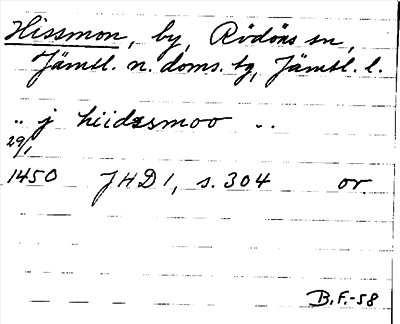 Hissmon, by, Rödöns sn,
Jämtl. n. doms. tg, Jämtl. l.
.. j hiidzsmoo ..
29/1
1450 JHD 1, s. 304 or.
B.F.-58